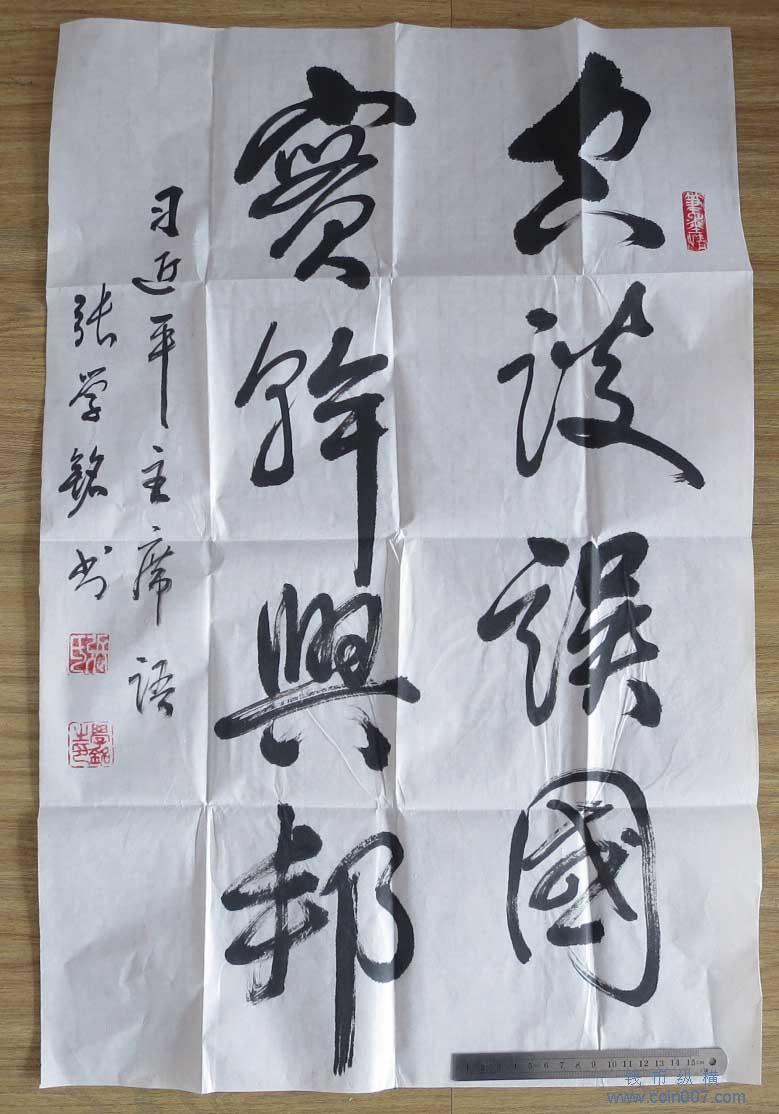 空談誤國
實幹興邦
习近平主席语
张学铭书
張氏
學銘之印
1 2 3 4 5 6 7 8 9 10 11 12 13 14 15cm
钱币纵横
www.coin007.com